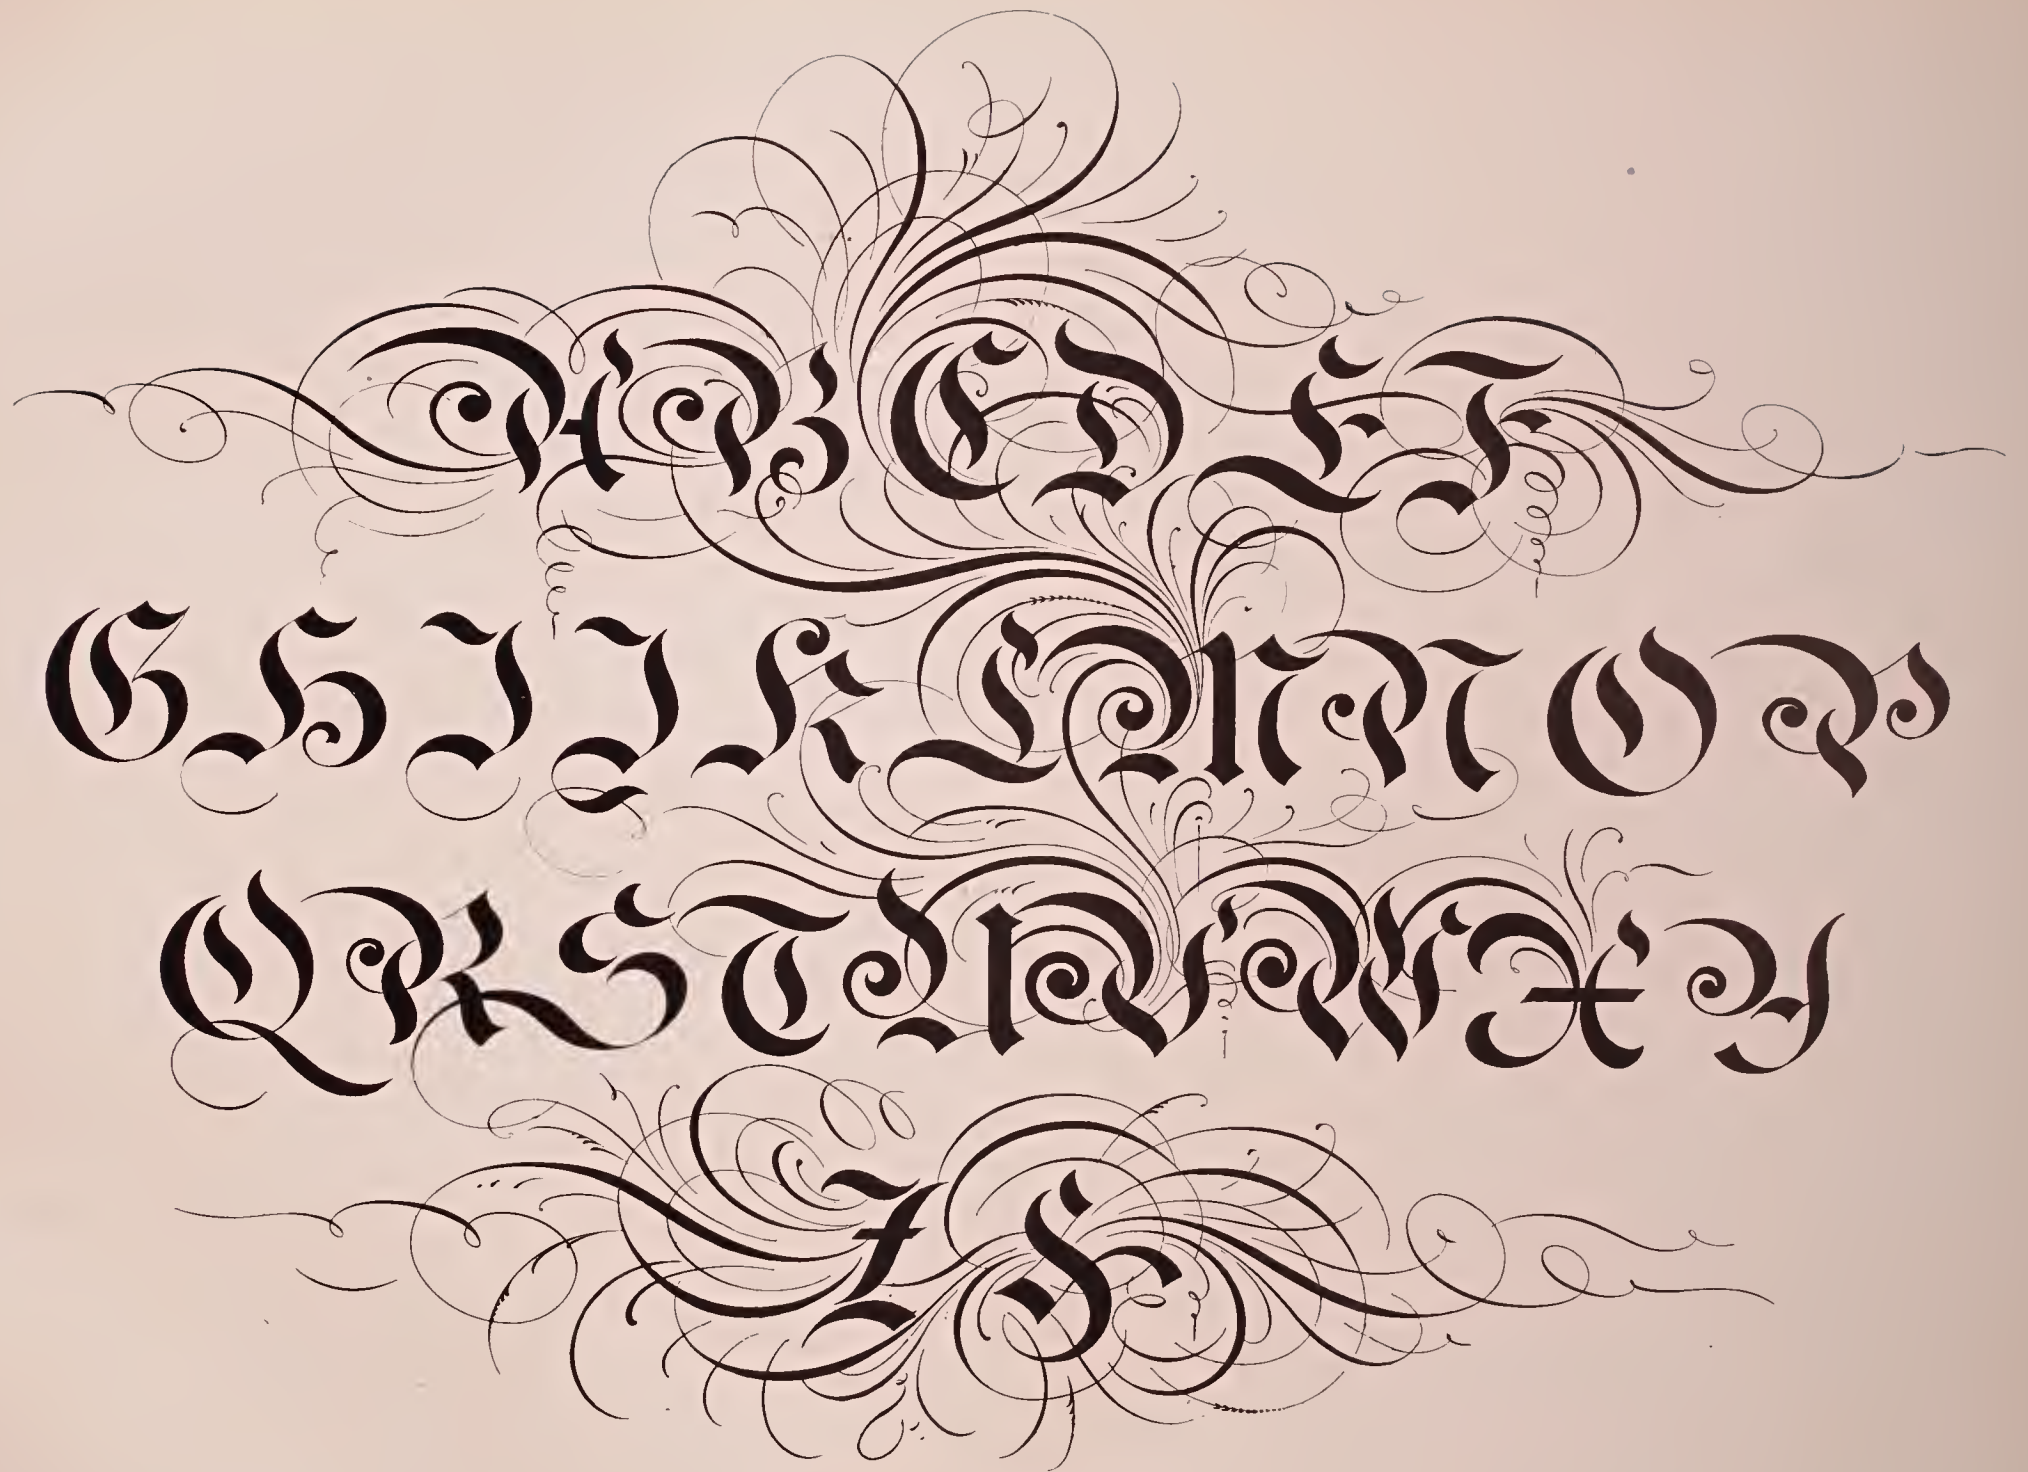 A B C D E F
G H I J K L M N O P
Q R S T U V W X Y
Z &